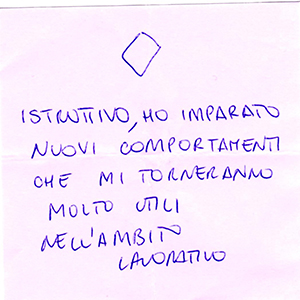 ISTRUTTIVO, HO IMPARATO
NUOVI COMPORTAMENTI
CHE MI TORNERANNO
MOLTO UTILI
NELL'AMBITO
LAVORATIVO